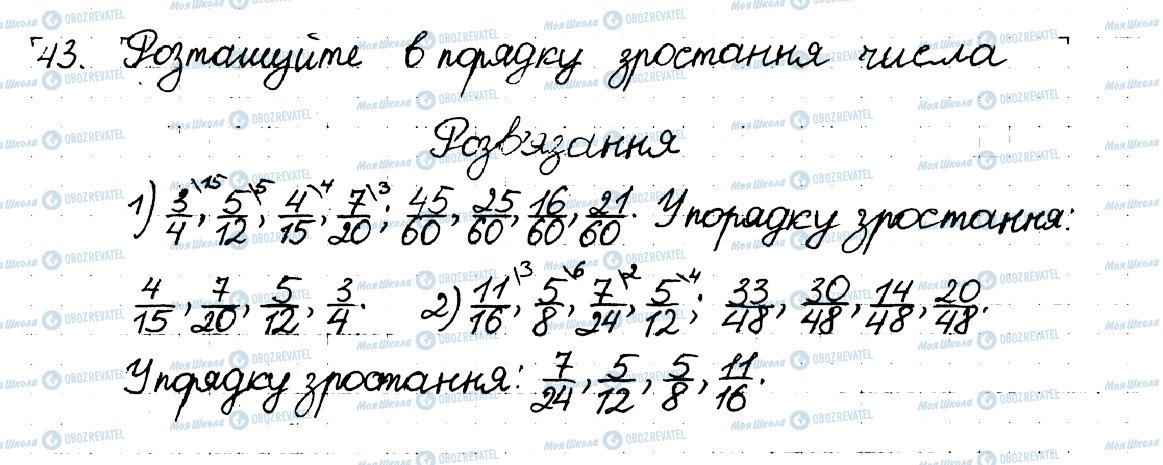 43. Розташуйте в порядку зростання числа
Розв'язання
1) 3/4\15, 5/12\5, 4/15\4, 7/20\3; 45/60, 25/60, 16/60, 21/60. У порядку зростання:
4/15, 7/20, 5/12, 3/4. 2) 11/16\3, 5/8\6, 7/24\2, 5/12\4; 33/48, 30/48, 14/48, 20/48.
У порядку зростання: 7/24, 5/12, 5/8, 11/16.